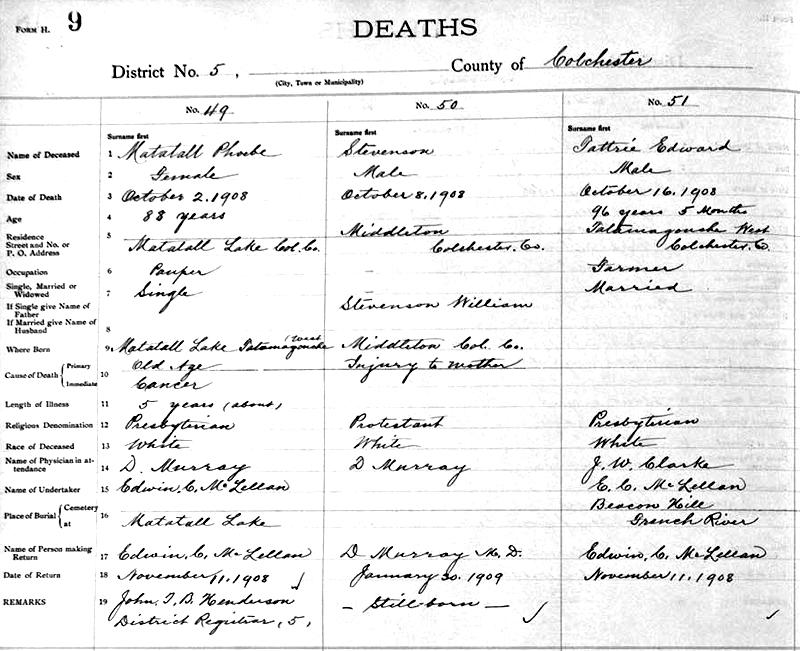 FORM H. 9
DEATHS
District No. 5, County of Colchester
(City, Town or Municipality)
No. 49 No. 50 No. 51
Surname first Surname first Surname first
Name of Deceased 1 Matatall Phoebe Stevenson Tattrie Edward
Sex 2 Female Male Male
Date of Death 3 October 2. 1908 October 8. 1908 October 16. 1908
Age 4 88 years — 96 years 5 Months
Residence 5 Middleton Tatamagouche West
Street and No. or
P. O. Address Matatall Lake Col. Co. Colchester. Co. Colchester. Co
Occupation 6 Pauper — Farmer
Single, Married or
Widowed 7 Single — Married
If Single give Name of
Father Stevenson William
If Married give Name of
Husband 8
Where Born 9 Matatall Lake Tatamagouche (West Middleton Col. Co.
Cause of Death Primary 10 Old Age Injury to Mother
Immediate Cancer
Length of Illness 11 5 years (about)
Religious Denomination 12 Presbyterian Protestant Presbyterian
Race of Deceased 13 White White White
Name of Physician in at-
tendance 14 D. Murray D Murray J. W. Clarke
Name of Undertaker 15 Edwin. C. McLellan E. C. McLellan
Place of Burial Cemetery 16 Beacon Hill
at Matatall Lake French River
Name of Person making
Return 17 Edwin. C. McLellan D Murray M. D. Edwin. C. McLellan
Date of Return 18 November 11. 1908 January 30. 1909 November 11. 1908
REMARKS 19 John. T. B. Henderson — Still-born —
District Registrar, 5,